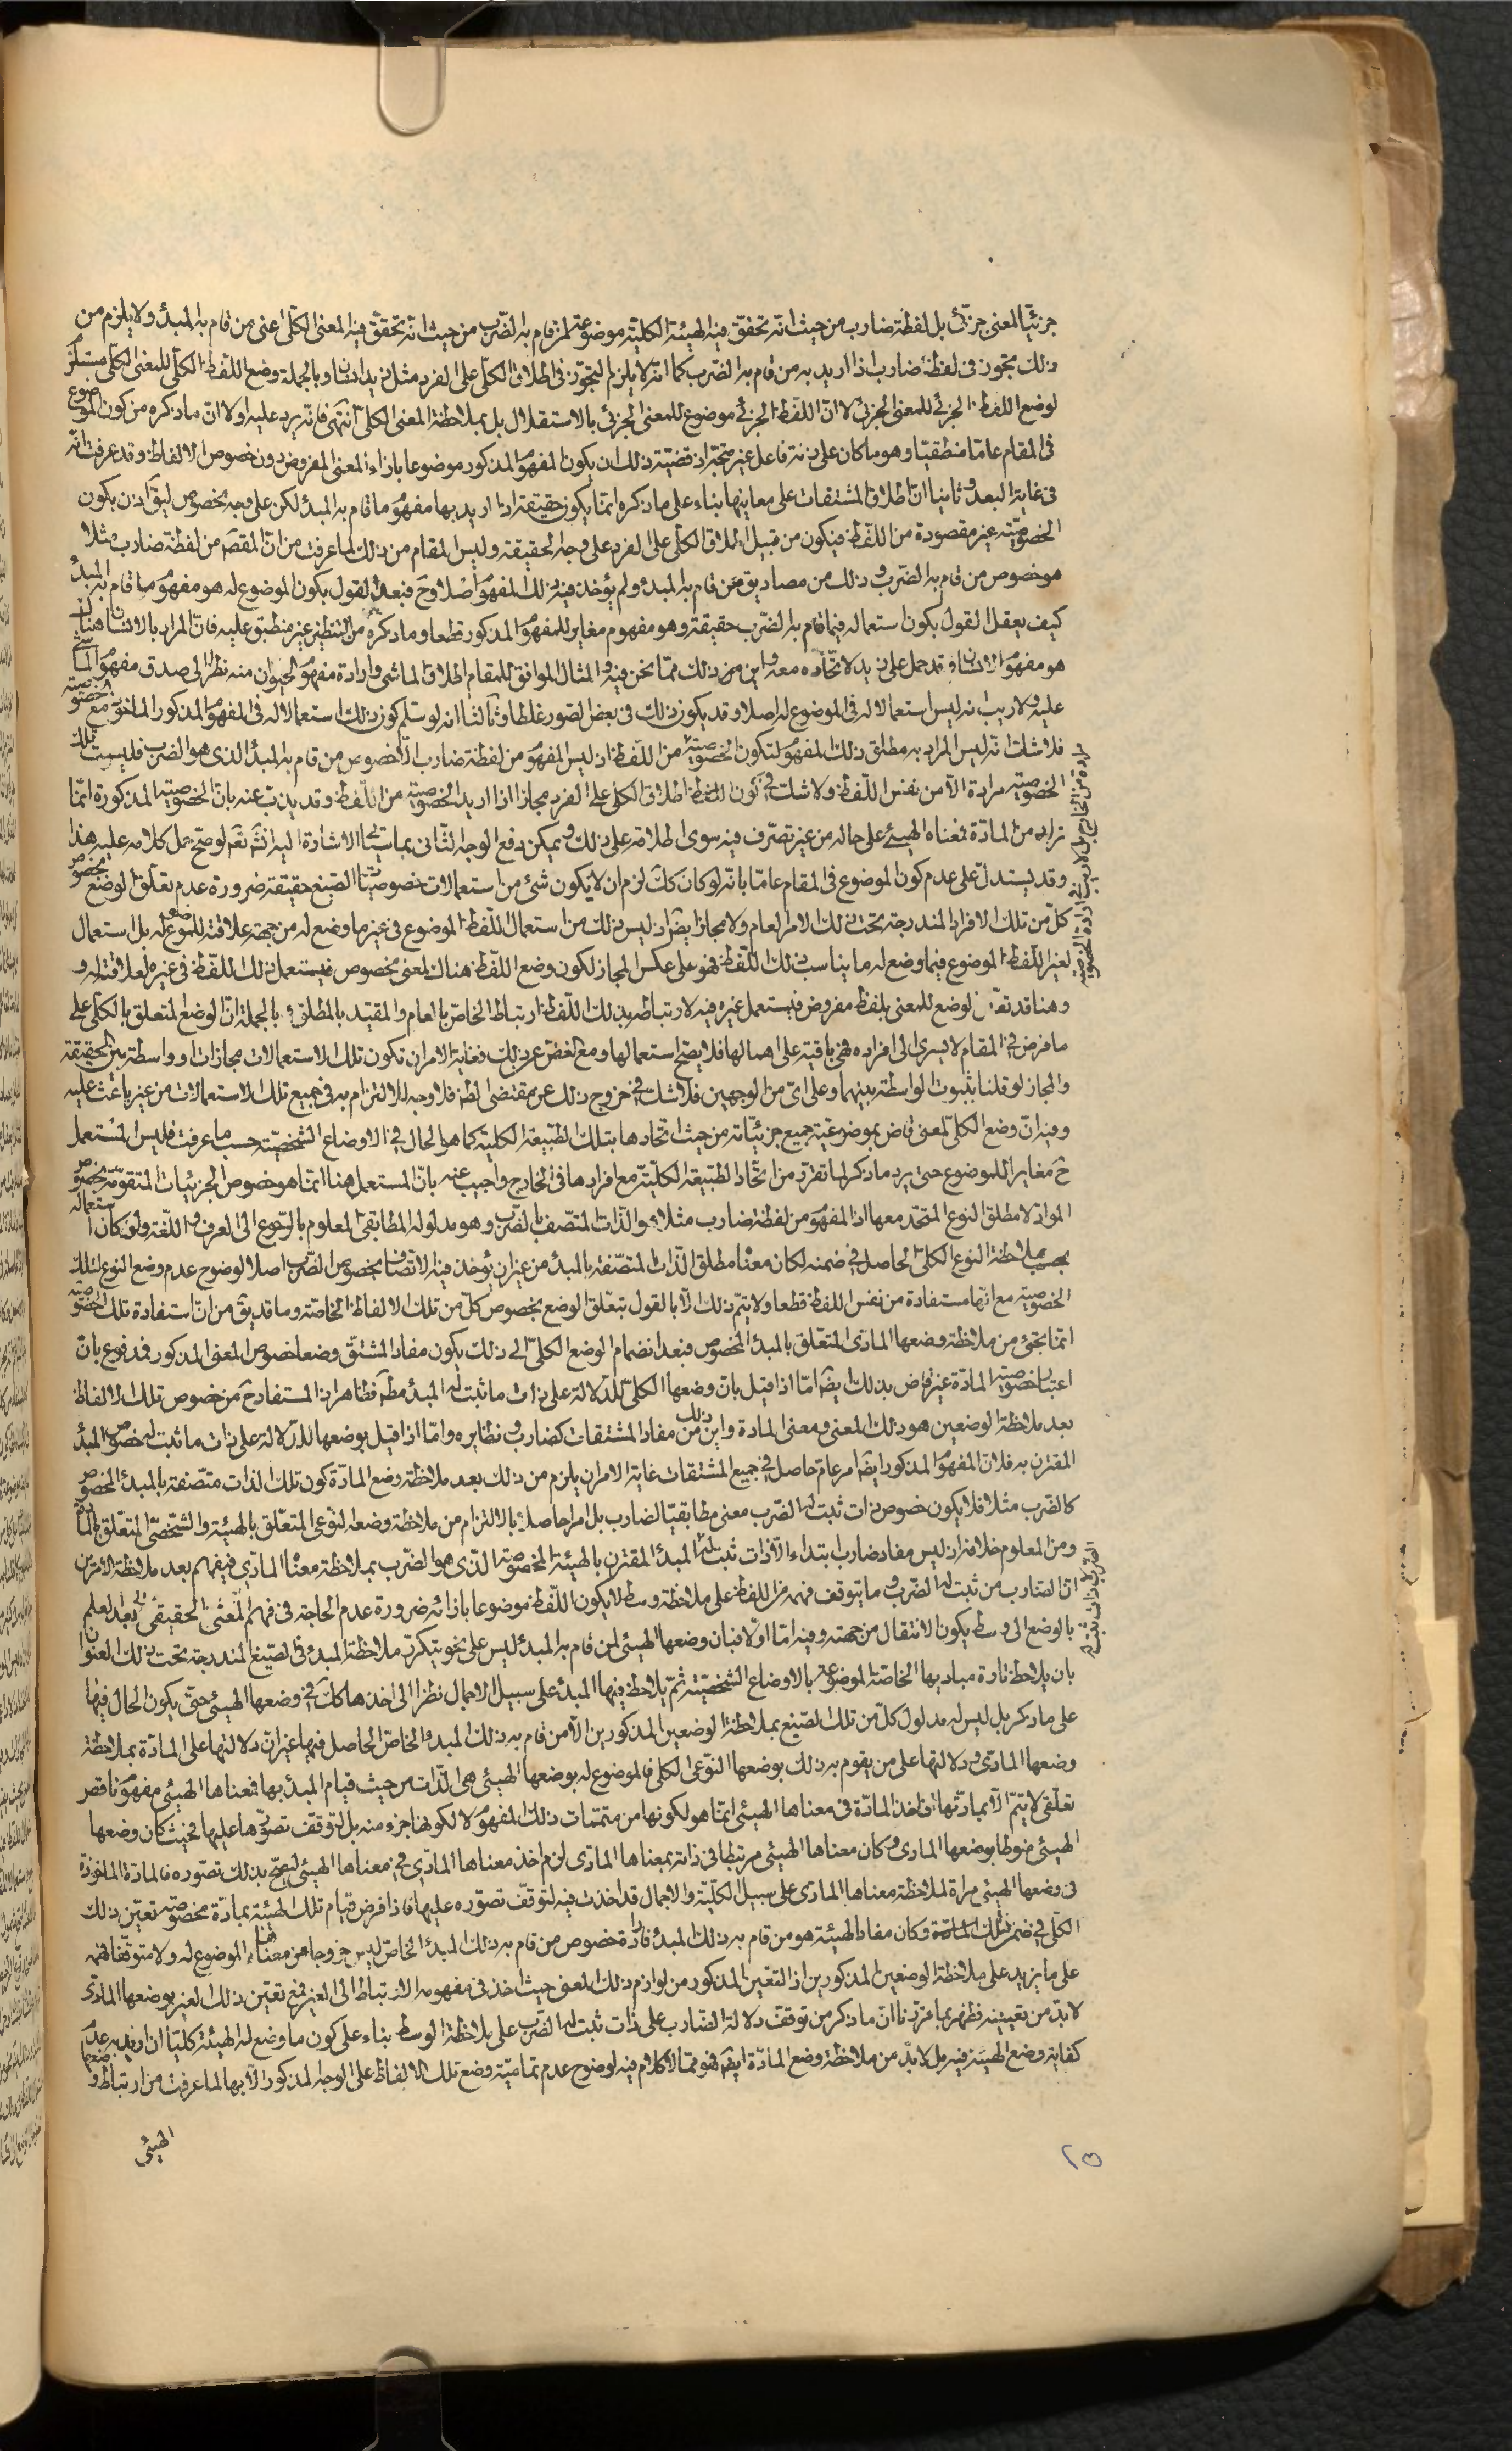 جزئيّا لمعنى جزئى بل لفظة ضارب من حيث انّه تحقق فيه الهيئة الكلية موضوعة لمن قام به الضّرب من حيث انّه تحقّق فيه المعنى الكلّى اعنى من قام به المبدأ ولا يلزم من
ذلك تجوز فى لفظة ضارب اذا اريد به من قام به الضرب كما انّه لا يلزم التجوّز فى اطلاق الكلّى على الفرد مثل زيد انسان وبالجملة وضع اللّفظ الكلّى للمعنى الكلّى مستلزم
لوضع اللفظ الجزئى للمعنى الجزئى لا انّ اللّفظ الجزئى موضوع للمعنى الجزئى بالاستقلال بل بملاحظة المعنى الكلى انتهى فانّه يرد عليه اولا انّ ما ذكره من كون الموضوع
فى المقام عامّا منطقيّا وهو ما كان على زنة فاعل غير متجه اذ قضيّة ذلك ان يكون المفهوم المذكور موضوعا بازاء المعنى المفروض دون خصوص الالفاظ وقد عرفت انّه
فى غاية البعد وثانيا انّ اطلاق المشتقات على معاينها بناء على ما ذكره انّما يكون حقيقة اذا اريد بها مفهوم ما قام به المبدأ لكن على وجه مخصوص ليق اذن بكون
الخصوصيّة غير مقصودة من اللّفظ فيكون من قبيل اطلاق الكلّى على الفرد على وجه الحقيقة وليس المقام من ذلك لما عرفت من انّ المقصم من لفظة ضارب مثلا
هو خصوص من قام به الضّرب و ذلك من مصاديق من قام به المبدأ ولم يؤخذ فيه ذلك المفهوم اصلا وح فبعد القول بكون الموضوع له هو مفهوم ما قام به المبدأ
كيف يعقل القول بكون استعماله فيما قام به الضّرب حقيقة وهو مفهوم مغاير للمفهوم المذكور قطعا وما ذكره من التنظير غير منطبق عليه فانّ المراد بالانسان هناك
هو مفهوم الانسان وقد حمل على زيد لاتّحاده معه واين من ذلك ممّا نحن فيه والمثال الموافق للمقام اطلاق الماشى وارادة مفهوم الحيوان منه نظرا الى صدق مفهوم الماشى
عليه ولا ريب انه ليس استعمالا له فى الموضوع له اصلا وقد يكون ذلك فى بعض الصّور غلطا وثالثا انه لو سلّم كون ذلك استعمالا له فى المفهوم المذكور الماخوذ مع الخصوصيّة
فلا شك انّه ليس المراد به مطلق ذلك المفهوم لتكون الخصوصيّة من اللّفظ اذ ليس المفهوم من لفظة ضارب الّا خصوص من قام به المبدأ الذى هو الضرب فليست تلك
الخصوصيّة مرادة الّا من نفس اللّفظ ولا شك فى كون اللفظ اطلاق الكلى على الفرد مجازا اذا اريد الخصوصيّة من اللّفظ وقد يذبّ عنه بانّ الخصوصيّة المذكورة انّما
تراد من المادّة فمعناه الهيئى على حاله من غير تصرّف فيه سوى اطلاقه على ذلك ويمكن دفع الوجه الثّانى بما سيجئ الاشارة اليه انشم نعم لو صحّ حمل كلامه عليه هذا
وقد يستدلّ على عدم كون الموضوع فى المقام عامّا بانّه لو كان كك لزم ان لا يكون شئ من استعمالات خصوصيّات الصّيغ حقيقة ضرورة عدم تعلّق الوضع بخصوص
كلّ من تلك الافراد المندرجة تحت ذلك الامر العام ولا مجازا ايضا اذ ليس ذلك من استعمال اللّفظ الموضوع فى غير ما وضع له من جهة علاقته للموضوع له بل استعمال
لغير اللّفظ الموضوع فيما وضع له ما يناسب ذلك اللّفظ فهو على عكس المجاز لكون وضع اللّفظ هناك لمعنى مخصوص فيستعمل ذلك اللّفظ فى غيره لعلاقته له و
وهنا قد تعيّن لوضع للمعنى بلفظ مفروض فيستعمل غيره فيه لارتباطه بذلك اللّفظ ارتباط الخاصّ بالعام والمقيّد بالمطلق وبالجملة انّ الوضع المتعلق بالكلّى على
ما فرض فى المقام لا يسرى الى افراده فهى باقية على اهمالها فلا يصحّ استعمالها ومع الغضّ عن ذلك فغاية الامر ان تكون تلك الاستعمالات مجازات او واسطة بين الحقيقة
والمجاز لو قلنا بثبوت الواسطة بينهما وعلى اىّ من الوجهين فلا شك فى خروج ذلك عن مقتضى الظ فلا وجه للالتزام به فى جميع تلك الاستعمالات من غير باعث عليه
وفيه انّ وضع الكلّى لمعنى قاض بموضوعيّة جميع جزئيّاته من حيث اتّحادها بتلك الطّبيعة الكلية كما هو الحال فى الاوضاع الشخصيّة حسب ما عرفت فليس المستعمل
ح مغايرا للموضوع حتى يرد ما ذكر لما تقرّر من اتّحاد الطّبيعة الكليّة مع افرادها فى الخارج واجيب عنه بانّ المستعمل هنا انّما هو خصوص الجزئيات المتقوّمة بخصوص
الموادّ لا مطلق النوع المتحّد معها اذ المفهوم من لفظة ضارب مثلا هو الذّات المتّصف بالضّرب وهو مدلوله المطابقى المعلوم بالرّجوع الى العرف واللّغة ولو كان استعماله
بحسب ملاحظة النوع الكلى الحاصل فى ضمنه لكان معناه مطلق الذّات المتصّفة بالمبدأ من غير ان يؤخذ فيه الاتّصاف بخصوص الضّرب اصلا لوضوح عدم وضع النوع لتلك
الخصوصيّة مع انها مستفادة من نفس اللفظ قطعا ولا يتمّ ذلك الّا بالقول بتعلّق الوضع بخصوص كلّ من تلك الالفاظ الخاصّة وما قد يق من انّ استفادة تلك الخصوصيّة
انّما يجئ من ملاحظة وضعها المادّى المتعّلق بالمبدأ المخصوص فبعد انضمام الوضع الكلّى الى ذلك يكون مفاد المشتقّ وضعا خصوص المعنى المذكور فمدفوع بانّ
اعتبار خصوصيّة المادّة غير قاض بذلك ايضا امّا اذا قيل بانّ وضعها الكلّى للدّلالة على ذات ما ثبت له المبدأ مطم فظاهر اذ المستفاد ح من خصوص تلك الالفاظ
بعد ملاحظة الوضعين هو ذلك المعنى ومعنى المادة واين ذلك من مفاد المشتقات كضارب ونظايره وامّا اذا قيل بوضعها للدّلالة على ذات ما ثبت له خصوص المبدأ
المقترن به فلانّ المفهوم المذكور ايضا امر عامّ حاصل فى جميع المشتقات غاية الامر ان يلزم من ذلك بعد ملاحظة وضع المادّة كون تلك الذات متّصفة بالمبدأ المخصوص
كالضّرب مثلا فلا يكون خصوص ذات ثبت له الضّرب معنى مطابقيّا لضارب بل امرا حاصلا بالالتزام من ملاحظة وضعه النّوعى المتعلّق بالهيئة والشّخصّى المتعلّق بالمادّة
ومن المعلوم خلافه اذ ليس مفاد ضارب ابتداء الّا ذات ثبت له المبدأ المقترن بالهيئة المخصوصة الذّى هو الضّرب بملاحظة معناه المادّى فيفهم بعد ملاحظة الامرين
انّ الضّارب من ثبت له الضّرب وما يتوقف فهمه من اللفظ على ملاحظة وسط لا يكون اللّفظ موضوعا بازائه ضرورة عدم الحاجة فى فهم المعنى الحقيقى بعد العلم
بالوضع الى وسط يكون الانتقال من جهته وفيه امّا اولا فبان وضعها الهيئى لمن قام به المبدأ ليس على نحو يتكرّر ملاحظة المبدأ فى الصّيغ المندرجة تحت ذلك العنوان
بان يلاحظ تارة مباديها الخاصّة الموضوعة بالاوضاع الشّخصّية ثمّ يلاحظ فيها المبدأ على سبيل الاجمال نظرا الى اخذها كك فى وضعها الهيئى حتى يكون الحال فيها
على ما ذكر بل ليس له مدلول كلّ من تلك الصّيغ بملاحظة الوضعين المذكورين الّا من قام به ذلك المبدأ الخاصّ الحاصل فيها غير انّ دلالتها على المادّة بملاحظة
وضعها المادّى ودلالتها على من يقوم به ذلك بوضعها النوّعى الكلّى فالموضوع له بوضعها الهيئى هى الذّات من حيث قيام المبدأ بها فمعناها الهيئى مفهوم ناقص
تعلّقى لا يتمّ الّا بمبادئها فاخذ المادّة فى معناها الهيئى انّما هو لكونها من متمّمات ذلك المفهوم لا لكونها جزء منه بل لتوقّف تصوّرها عليها فحيث كان وضعها
الهيئى منوطا بوضعها المادى وكان معناها الهيئى مرتبطا فى ذاته بمعناها المادّى لزم اخذ معناها المادّى فى معناها الهيئى ليصحّ بذلك تصوّره فالمادّة الماخوذة
فى وضعها الهيئى مراة لملاحظة معناها المادى على سبيل الكلّية والاجمال قد اخذت فيه لتوقف تصوّره عليها فاذا فرض قيام تلك الهيئة بمادّة مخصوصة تعيّن ذلك
الكلّى فى ضمن تلك المادّة وكان مفاد الهيئة هو من قام به ذلك المبدأ فارادة خصوص من قام به ذلك المبدأ الخاصّ ليس خروجا عن معناه الموضوع له ولا متوقّفا فهمه
على ما يزيد على ملاحظة الوضعين المذكورين اذ التعّين المذكور من لوازم ذلك المعنى حيث اخذ فى مفهومه الارتباط الى الغير فمع تعيّن ذلك الغير بوضعها المادّى
لا بدّ من تعيينه فظهر بما قررّنا انّ ما ذكر من توقّف دلالة الضّارب على ذات ثبت له الضّرب على ملاحظة الوسط بناء على كون ما وضع له الهيئة كلّيّا ان اريد به عدم
كفاية وضع الهيئة فيه بل لا بدّ من ملاحظة وضع المادّة ايضا فهو ممّا لا كلام فيه لوضوح عدم تماميّة وضع تلك الالفاظ على الوجه المذكور الّا بها لما عرفت من ارتباط وضعها
الهيئى
٢٥